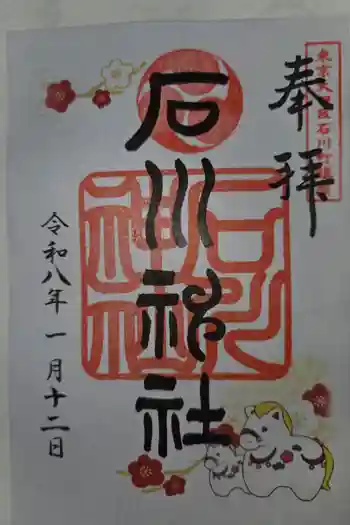 奉拝
東京大田区石川町鎮
石川神社
石川神社
令和八年一月十二日